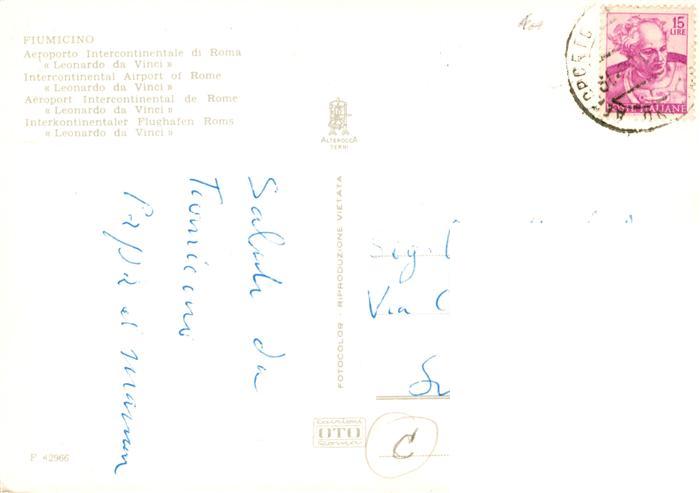 FIUMICINO
Aeroporto Intercontinentale di Roma
« Leonardo da Vinci »
Intercontinental Airport of Rome
« Leonardo da Vinci »
Aeroport Intercontinental de Rome
« Leonardo da Vinci »
Interkontinentaler Flughafen Roms
« Leonardo da Vinci »
15
LIRE
ITALIANE
ALTEROCCA
TERNI
Saluti da
Fiumicino
Papà e mamma
FOTOCOLOR - RIPRODUZIONE VIETATA
Via C
cartoni
OTO
roma
C
F 42966